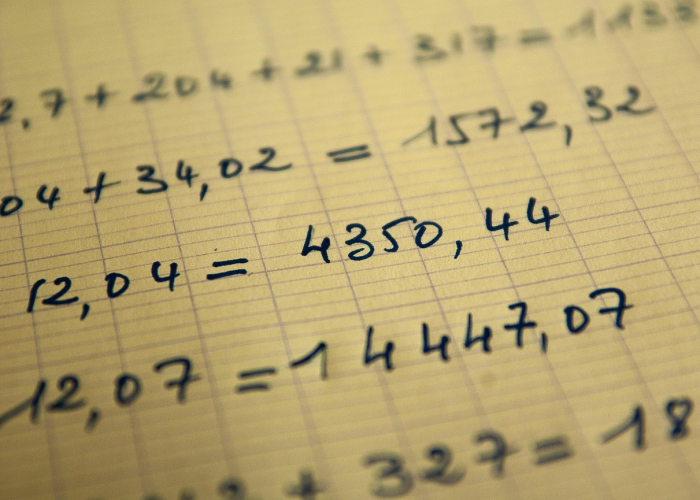 2,7 + 204 + 21 + 317 = 1133
04 + 34,02 = 1572,32
12,04 = 4350,44
12,07 = 14447,07
+ 327 = 18